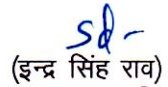 sd-
(इन्द्र सिंह राव)